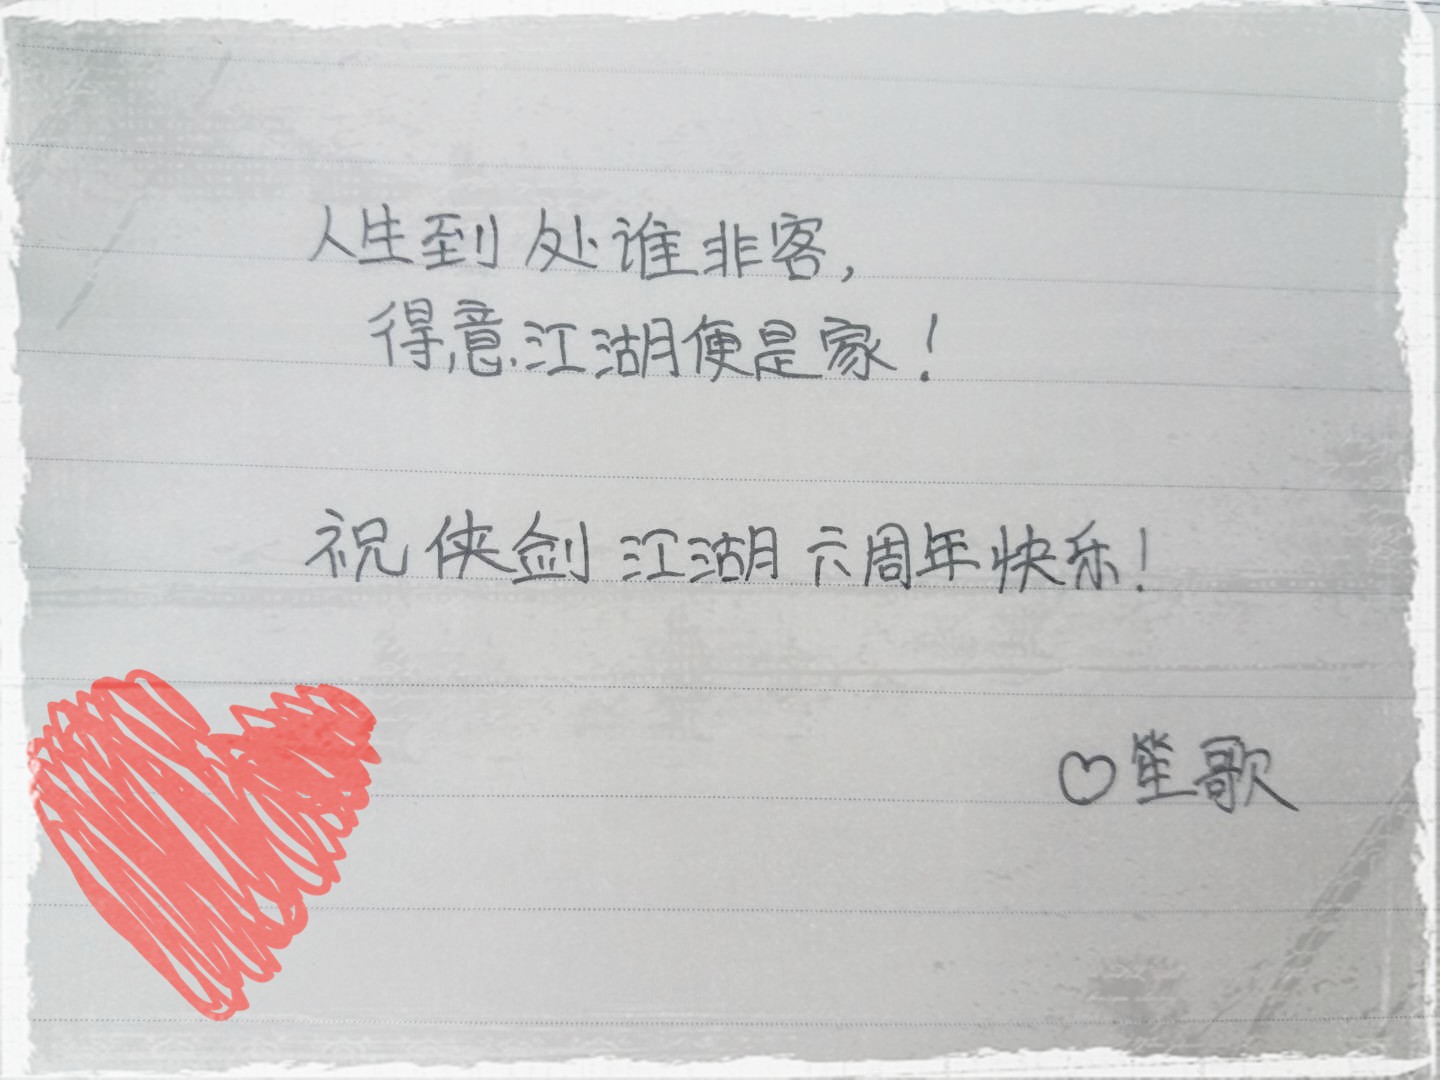 人生到处谁非客,
得意江湖便是家!
祝侠剑江湖六周年快乐!
♡笙歌